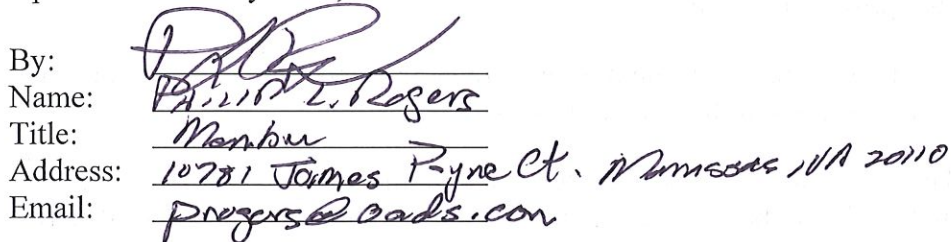 By:
Name: Philip L. Rogers
Title: Member
Address: 10781 James Payne Ct. Manassas, VA 20110
Email: progers@oads.com